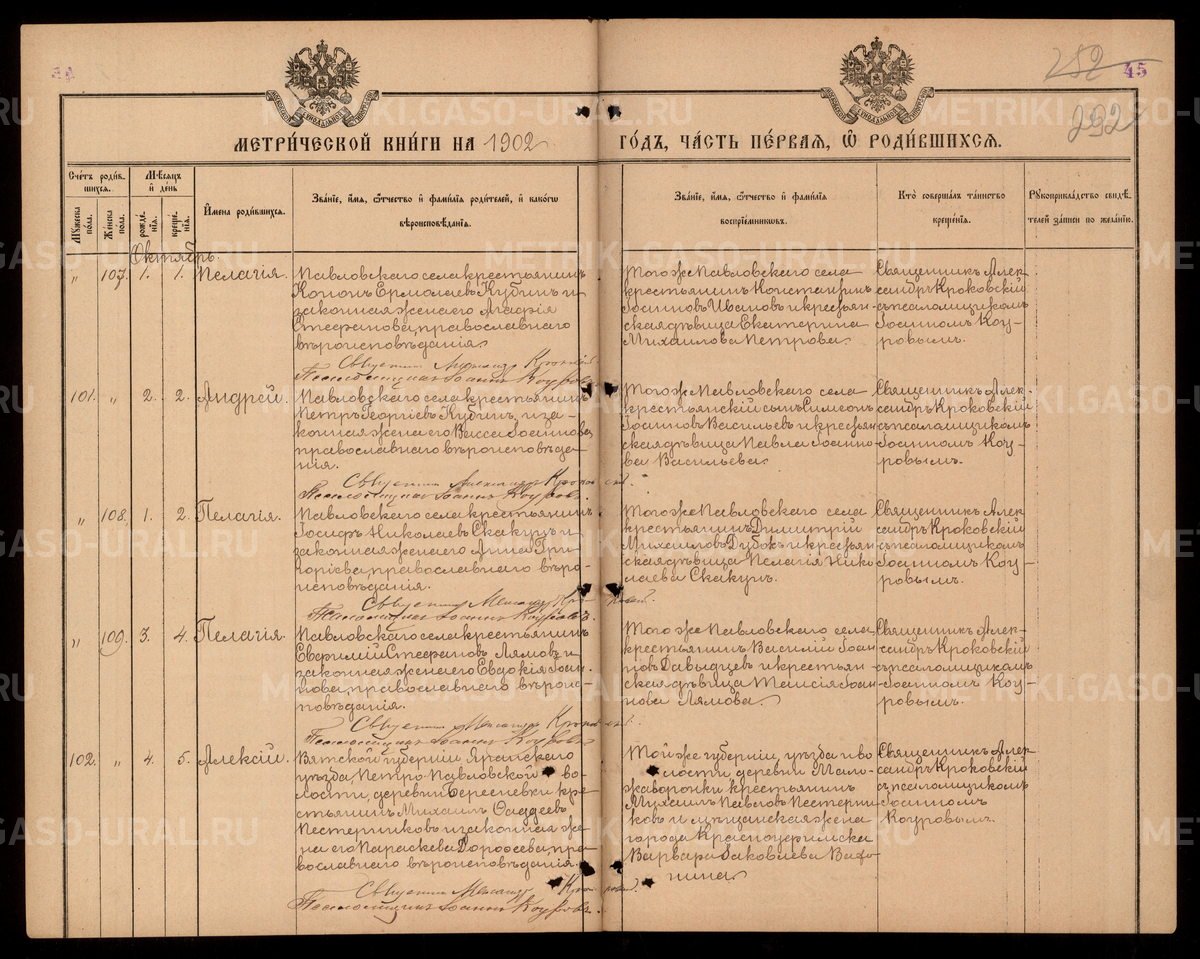 252
45
292
МЕТРИ́ЧЕСКОЙ КНИ́ГИ НА 1902
ГО́ДЪ, ЧА́СТЬ ПЕ́РВАЯ, Ѡ РОДИ́ВШИХСЯ.
Сче́тъ роди́в-
шихся.
Му́жеска по́ла.
Же́нска по́ла.
Мѣ́сяцъ
и҆ де́нь
рожде́-
нїя.
креще́-
нїя.
И҆мена̀ роди́вшихся.
Зва́нїе, и҆́мя, ѻ҆́тчество и҆ фами́лїя роди́телей, и҆ како́гѡ
вѣроисповѣ́данїя.
Зва́нїе, и҆́мя, ѻ҆́тчество и҆ фами́лїя
воспрїе́мникѡвъ.
Кто̀ соверша́лъ та́инство
креще́нїя.
Рꙋкоприкла́дство свидѣ́-
телей за́писи по жела́нїю.
Октябрь.
" 107. 1. 1. Пелагія.
Павловскаго села крестьянинъ
Кононъ Ермолаевъ Кубинъ и
законная жена его Агафія
Стефанова, православнаго
вѣроисповѣданія.
Священникъ Александръ Кроковскій.
Псаломщикъ Іоаннъ Коуровъ.
Того же Павловскаго села
крестьянинъ Константинъ
Іоанновъ Ивановъ и крестьян-
ская дѣвица Екатерина
Михаилова Петрова.
Священникъ Алек-
сандръ Кроковскій
съ псаломщикомъ
Іоанномъ Коу-
ровымъ.
101. " 2. 2. Андрей.
Павловскаго села крестьянинъ
Петръ Георгіевъ Кубинъ и за-
конная жена его Васса Іоаннова,
православнаго вѣроисповѣда-
нія.
Священникъ Александръ Кроковскій.
Псаломщикъ Іоаннъ Коуровъ.
Того же Павловскаго села
крестьянскій сынъ Симеонъ
Іоанновъ Васильевъ и крестьян-
ская дѣвица Павла Іоанно-
ва Васильева.
Священникъ Алек-
сандръ Кроковскій
съ псаломщикомъ
Іоанномъ Коу-
ровымъ.
" 108. 1. 2. Пелагія.
Павловскаго села крестьянинъ
Іосифъ Николаевъ Скакунъ и
законная жена его Анна Гри-
горіева, православнаго вѣро-
исповѣданія.
Священникъ Александръ Кроковскій.
Псаломщикъ Іоаннъ Коуровъ.
Того же Павловскаго села
крестьянинъ Димитрій
Михаиловъ Дубокъ и крестьян-
ская дѣвица Пелагія Нико-
лаева Скакунъ.
Священникъ Алек-
сандръ Кроковскій
съ псаломщикомъ
Іоанномъ Коу-
ровымъ.
" 109. 3. 4. Пелагія.
Павловскаго села крестьянинъ
Евфимій Стефановъ Лямовъ и
законная жена его Евдокія Іоан-
нова, православнаго вѣроис-
повѣданія.
Священникъ Александръ Кроковскій.
Псаломщикъ Іоаннъ Коуровъ.
Того же Павловскаго села
крестьянинъ Василій Іоан-
новъ Давыдцевъ и крестьян-
ская дѣвица Таисія Іоан-
нова Лямова.
Священникъ Алек-
сандръ Кроковскій
съ псаломщикомъ
Іоанномъ Коу-
ровымъ.
102. " 4. 5. Алексій.
Вятской губерніи Яранскаго
уѣзда, Петро-Павловской во-
лости, деревни Березневки кре-
стьянинъ Михаилъ Фаддеевъ
Пестерниковъ и законная же-
на его Параскева Дорофеева, пра-
вославнаго вѣроисповѣданія.
Священникъ Александръ Кроковскій.
Псаломщикъ Іоаннъ Коуровъ.
Той же губерніи, уѣзда и во-
лости деревни
крестьянинъ
Михаилъ Павловъ Пестерни-
ковъ и мѣщанская жена
города Красноуфимска
Варвара Іаковлева Вафо-
нина
Священникъ Алек-
сандръ Кроковскій
съ псаломщикомъ
Іоанномъ
Коуровымъ.
METRIKI.GASO-URAL.RU